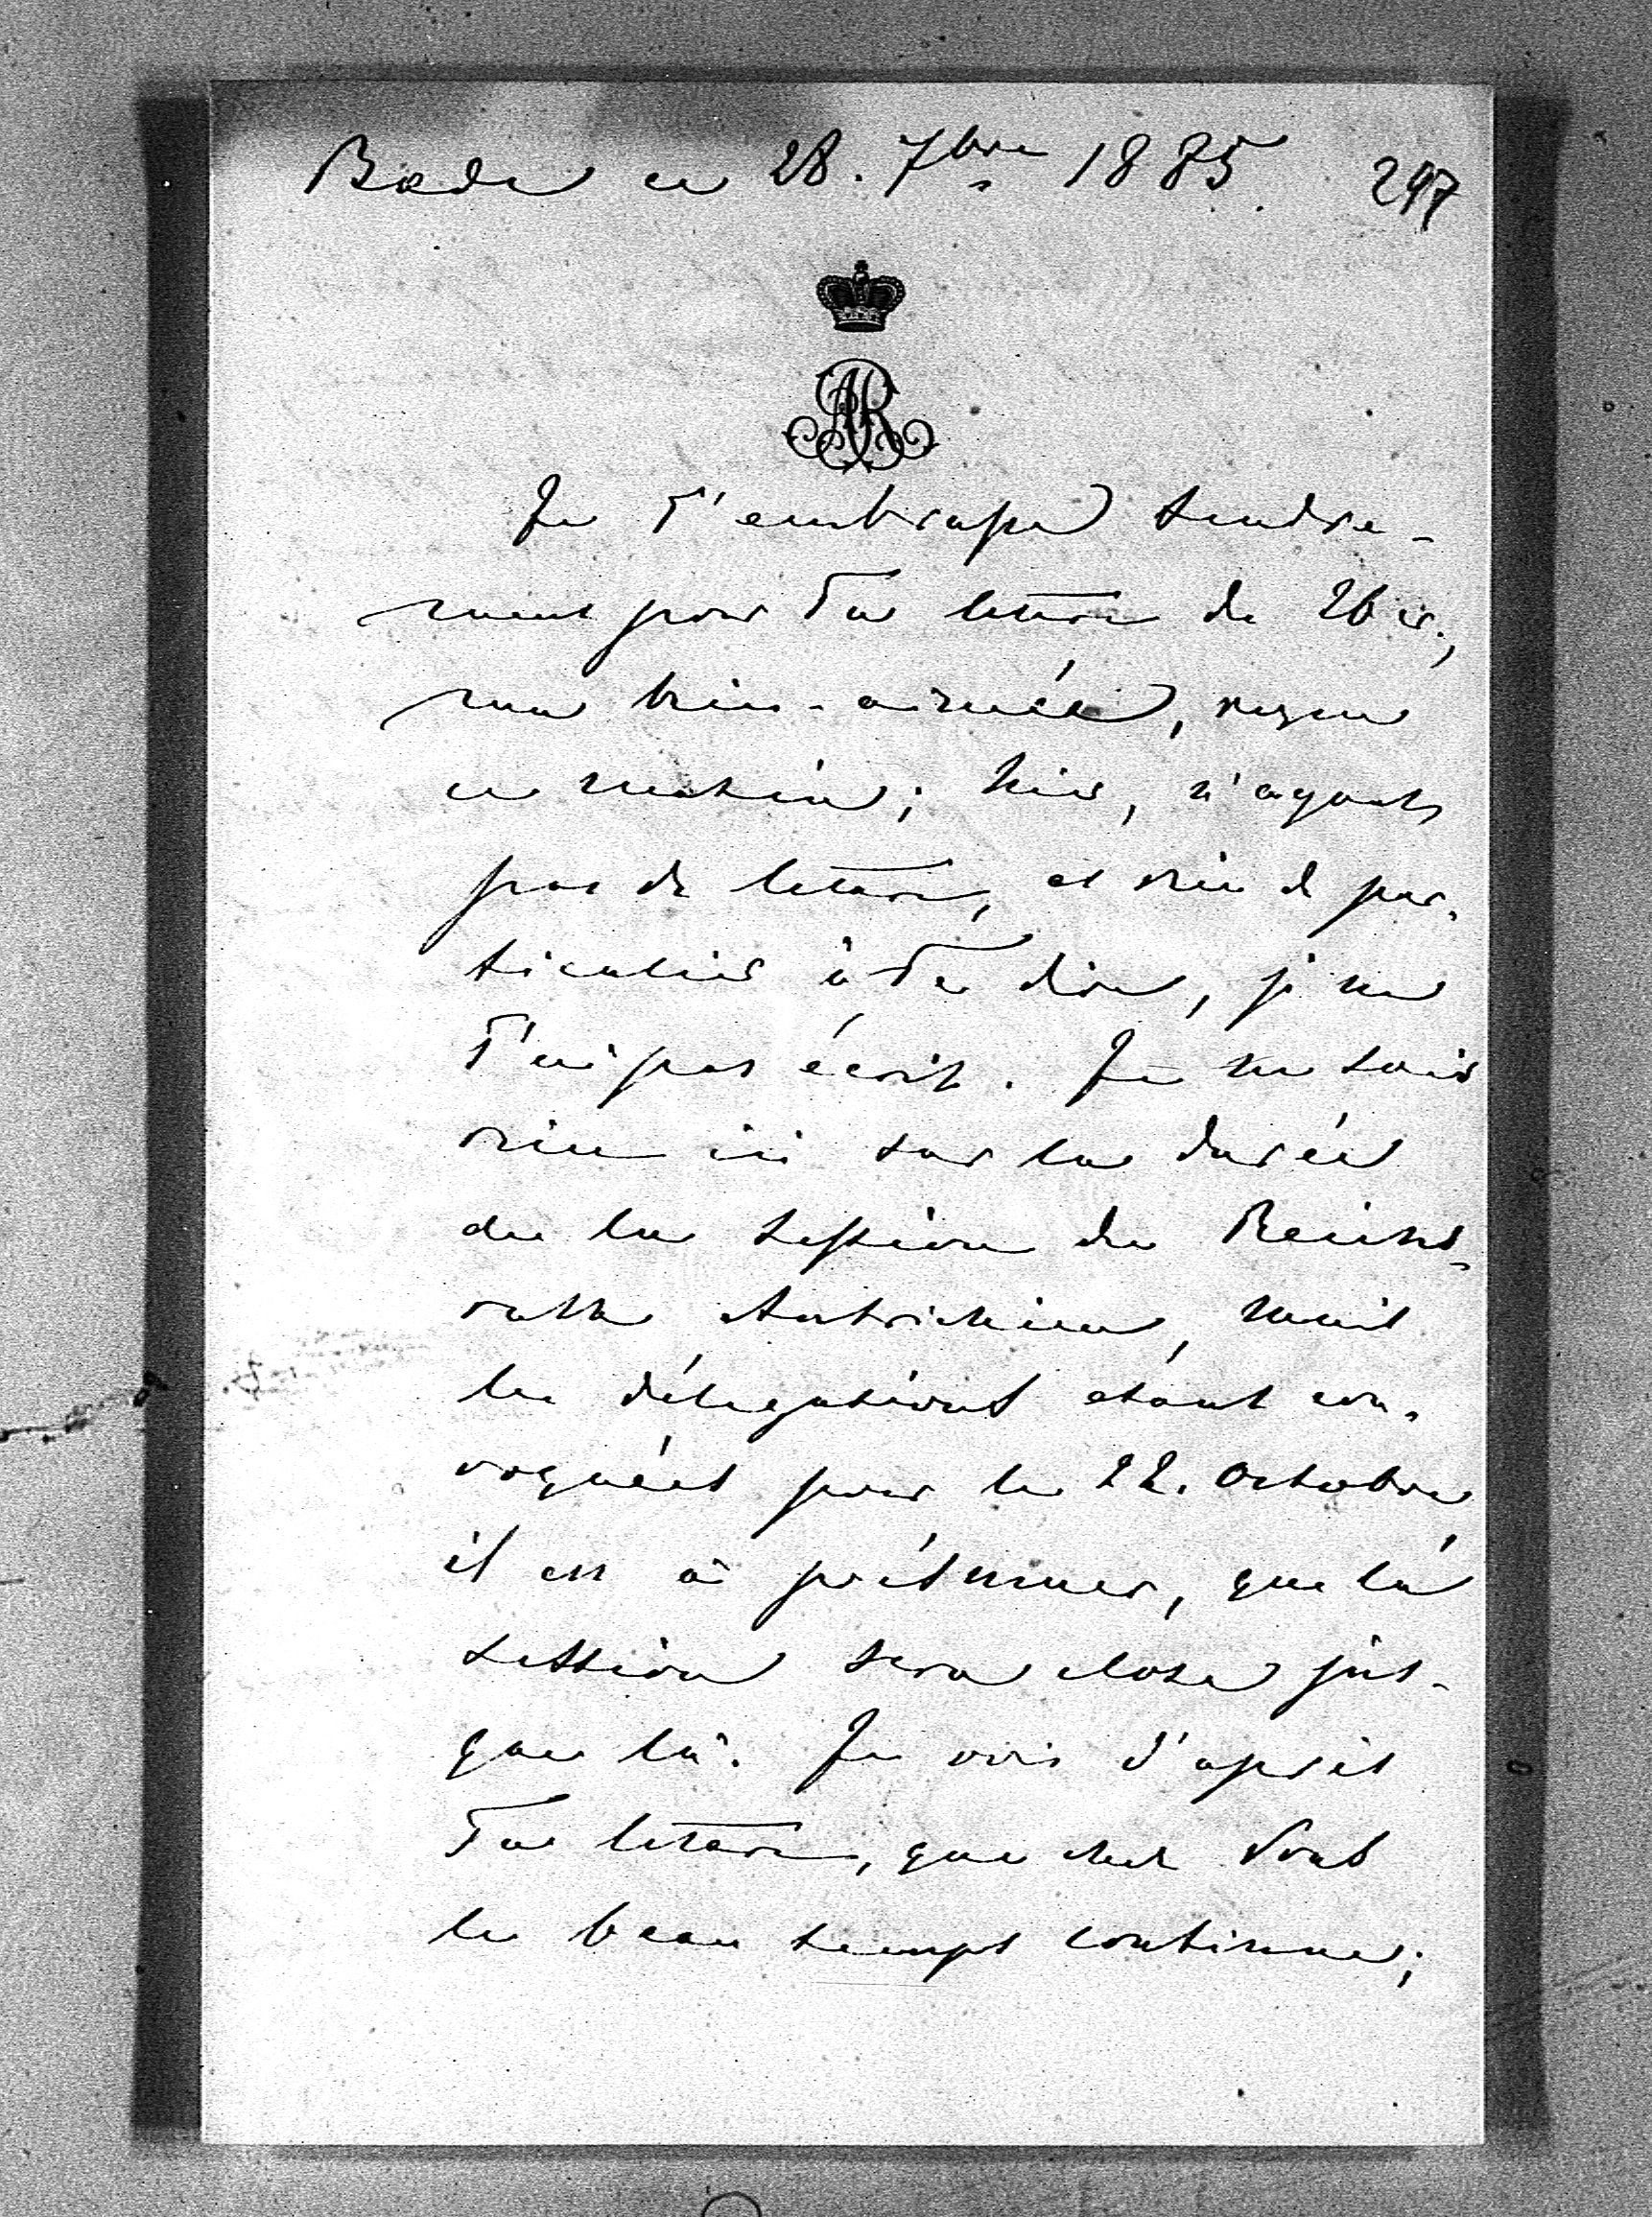 Bade ce 28. 7bre 1885. 297
AR
Je T'embrasse tendre-
ment pour Ta lettre du 26 cr.,
ma bien-aimée, reçue
ce matin; hier, n'ayant
pas de lettre, et rien de par-
ticulier à Te dire, je ne
T'ai pas écrit. Je ne sais
rien ici sur la durée
de la session du Reichs-
rath Autrichien, mais
les délégations etant con-
voquées pour le 22. Octobre
il est à présumer, que la
session sera close jus-
que là. Je vois d'après
Ta lettre, que chez Vous
le beau temps continue;